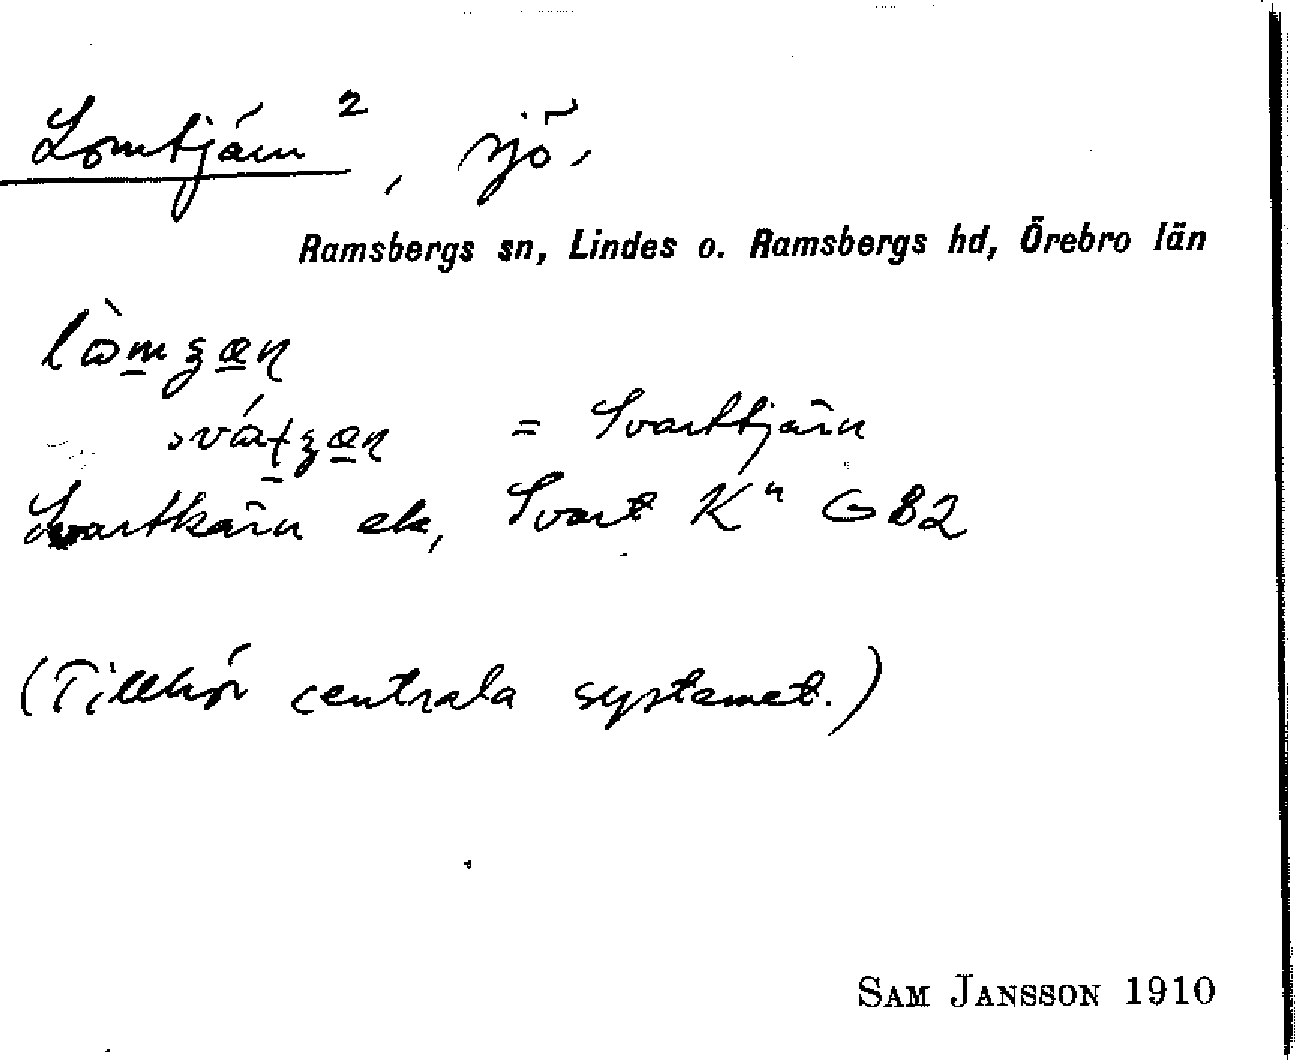 Lomtjärn 2, sjö.
Ramsbergs sn, Lindes o. Ramsbergs hd, Örebro län
= Svarttjärn
Svartkärn ek, Svart Kn GB2
(Tillhör centrala systemet.)
SAM JANSSON 1910